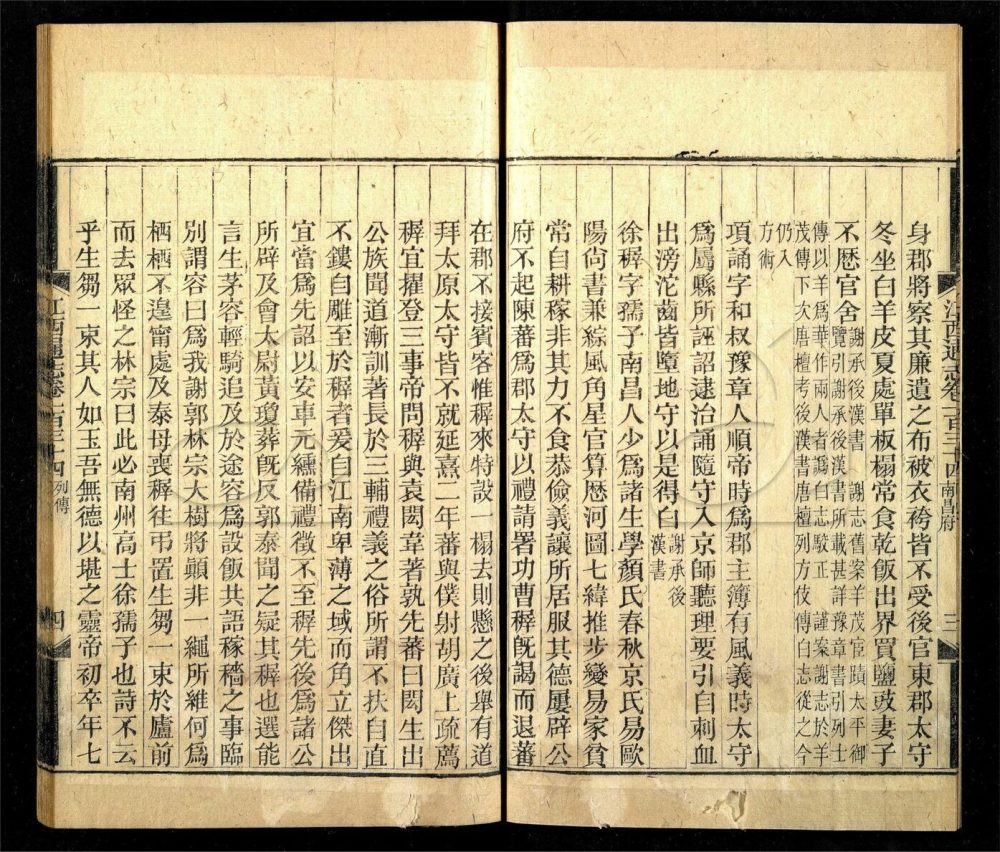 江西通志卷一百三十四 南昌府 三
身郡將察其廉遺之布被衣袴皆不受後官東郡太守
冬坐白羊皮夏處單板榻常食乾飯出界買鹽豉妻子
不歷官舍
謝承後漢書 謝志舊案羊茂宦蹟太平御
覽引謝承後漢書所載甚詳豫章書引列士
傳以羊爲華作兩人者譌白志駮正 謹案謝志於羊
茂傳下次唐檀考後漢書唐檀列方伎傳白志從之今
仍入
方術
項誦字和叔豫章人順帝時爲郡主簿有風義時太守
爲屬縣所誣詔逮治誦隨守入京師聽理要引自刺血
出滂沱齒皆墮地守以是得白
謝承後
漢書
徐穉字孺子南昌人少爲諸生學顏氏春秋京氏易歐
陽尙書兼綜風角星官算歷河圖七緯推步變易家貧
常自耕稼非其力不食恭儉義讓所居服其德屢辟公
府不起陳蕃爲郡太守以禮請署功曹穉旣謁而退蕃
在郡不接賓客惟穉來特設一榻去則懸之後舉有道
拜太原太守皆不就延熹二年蕃與僕射胡廣上疏薦
穉宜擢登三事帝問穉與袁閎韋著孰先蕃曰閎生出
公族聞道漸訓著長於三輔禮義之俗所謂不扶自直
不鏤自雕至於穉者爰自江南卑薄之域而角立傑出
宜當爲先詔以安車元纁備禮徵不至穉先後爲諸公
所辟及會太尉黃瓊葬旣反郭泰聞之疑其穉也選能
言生茅容輕騎追及於途容爲設飯共語稼穡之事臨
別謂容曰爲我謝郭林宗大樹將顚非一繩所維何爲
栖栖不遑甯處及泰母喪穉往弔置生芻一束於廬前
而去眾怪之林宗曰此必南州高士徐孺子也詩不云
乎生芻一束其人如玉吾無德以堪之靈帝初卒年七
江西通志卷一百三十四 列傳 四